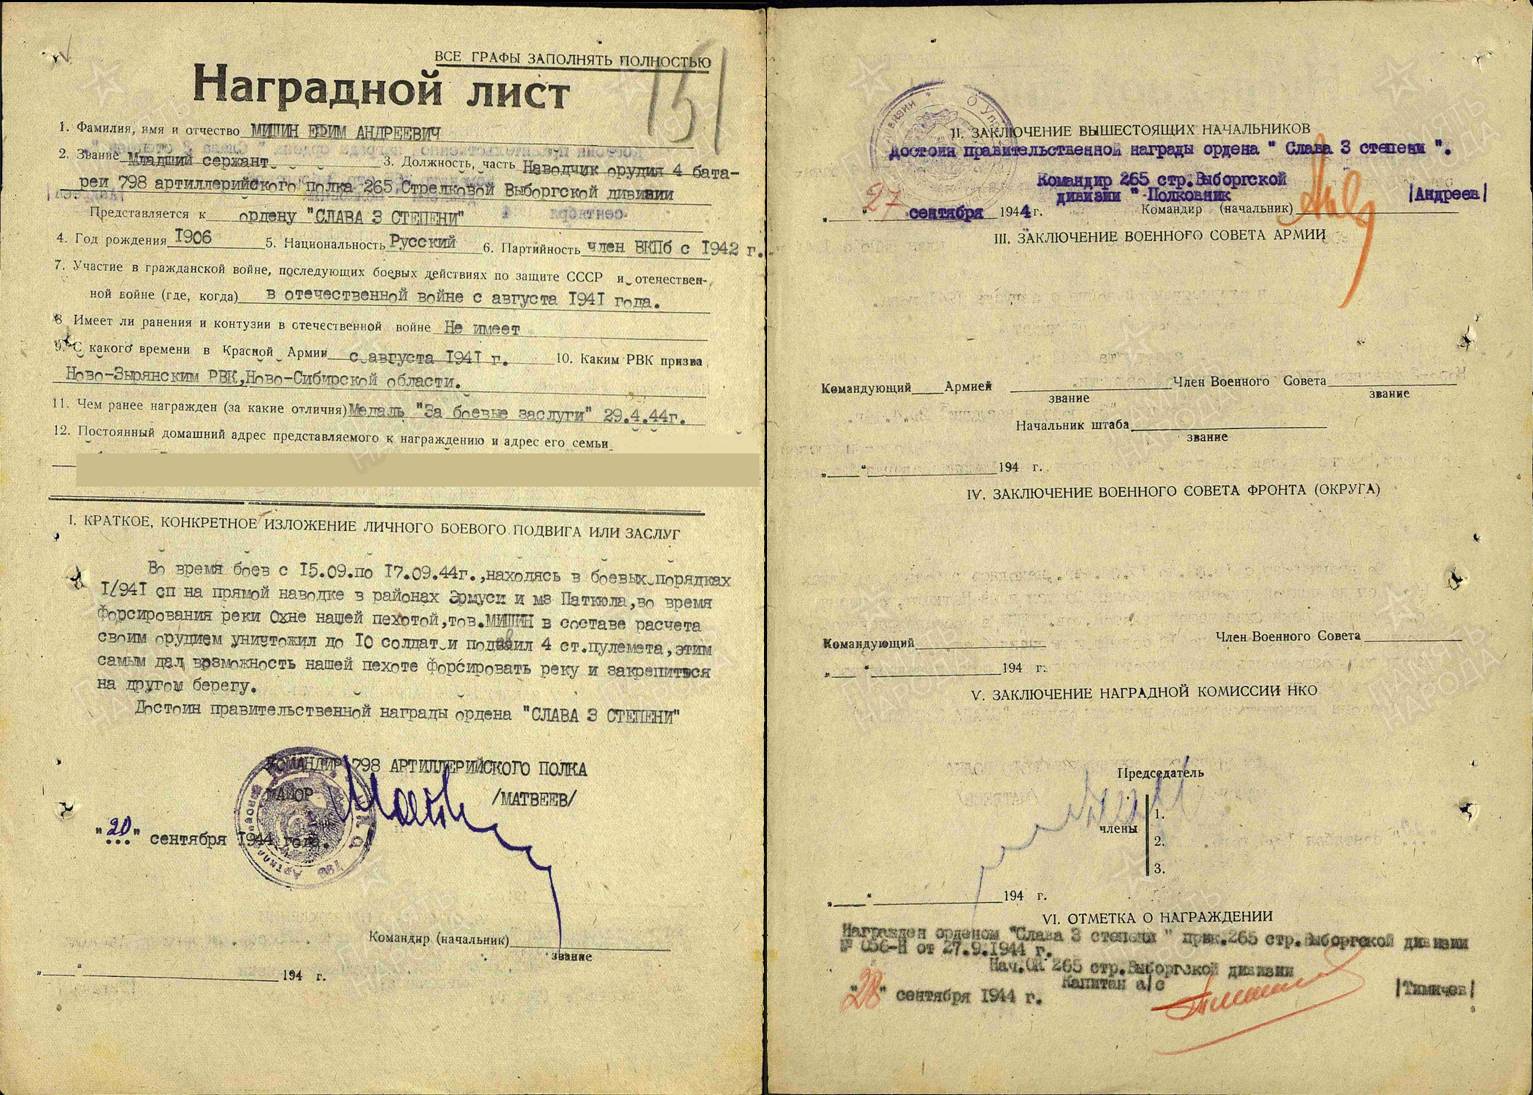 ВСЕ ГРАФЫ ЗАПОЛНЯТЬ ПОЛНОСТЬЮ
151
Наградной лист
1. Фамилия, имя и отчество МИШИН ЕФИМ АНДРЕЕВИЧ
2. Звание Младший сержант 3. Должность, часть Наводчик орудия 4 бата-
реи 798 артиллерийского полка 265 Стрелковой Выборгской дивизии
Представляется к ордену "СЛАВА 3 СТЕПЕНИ"
4. Год рождения 1906 5. Национальность Русский 6. Партийность член ВКПб с 1942 г.
7. Участие в гражданской войне, последующих боевых действиях по защите СССР и отечествен-
ной войне (где, когда) в отечественной войне с августа 1941 года.
8 Имеет ли ранения и контузии в отечественной войне Не имеет
9. С какого времени в Красной Армии с августа 1941 г. 10. Каким РВК призва
Ново-Зырянским РВК, Ново-Сибирской области.
11. Чем ранее награжден (за какие отличия) Медаль "За боевые заслуги" 29.4.44г.
12. Постоянный домашний адрес представляемого к награждению и адрес его семьи
I. КРАТКОЕ, КОНКРЕТНОЕ ИЗЛОЖЕНИЕ ЛИЧНОГО БОЕВОГО ПОДВИГА ИЛИ ЗАСЛУГ
Во время боев с 15.09.по 17.09.44г.,находясь в боевых порядках
1/941 сп на прямой наводке в районах Эрмуси и мз Паткюла,во время
форсирования реки Охне нашей пехотой,тов.МИШИН в составе расчета
своим орудием уничтожил до 10 солдат и подавил 4 ст.пулемета,этим
самым дал возможность нашей пехоте форсировать реку и закрепиться
на другом берегу.
Достоин правительственной награды ордена "СЛАВА 3 СТЕПЕНИ"
КОМАНДИР 798 АРТИЛЛЕРИЙСКОГО ПОЛКА
МАЙОР /МАТВЕЕВ/
"20" сентября 1944 года.
Командир (начальник)
звание
" " 194 г.
II. ЗАКЛЮЧЕНИЕ ВЫШЕСТОЯЩИХ НАЧАЛЬНИКОВ
Достоин правительственной награды ордена " Слава 3 степени ".
Командир 265 стр.Выборгской
дивизии " Полковник |Андреев|
" 27 " сентября 1944 г. Командир (начальник)
III. ЗАКЛЮЧЕНИЕ ВОЕННОГО СОВЕТА АРМИИ
Командующий Армией Член Военного Совета
звание звание
Начальник штаба
звание
" " 194 г.
IV. ЗАКЛЮЧЕНИЕ ВОЕННОГО СОВЕТА ФРОНТА (ОКРУГА)
Командующий Член Военного Совета
" " 194 г.
V. ЗАКЛЮЧЕНИЕ НАГРАДНОЙ КОМИССИИ НКО
Председатель
члены
1.
2.
3.
" " 194 г.
VI. ОТМЕТКА О НАГРАЖДЕНИИ
Награжден орденом "Слава 3 степени " прик.265 стр.Выборгской дивизии
№ 056-Н от 27.9.1944 г.
Нач.ОК 265 стр.Выборгской дивизии
Капитан а/с |Тимичев|
"28" сентября 1944 г.
ПАМЯТЬ НАРОДА